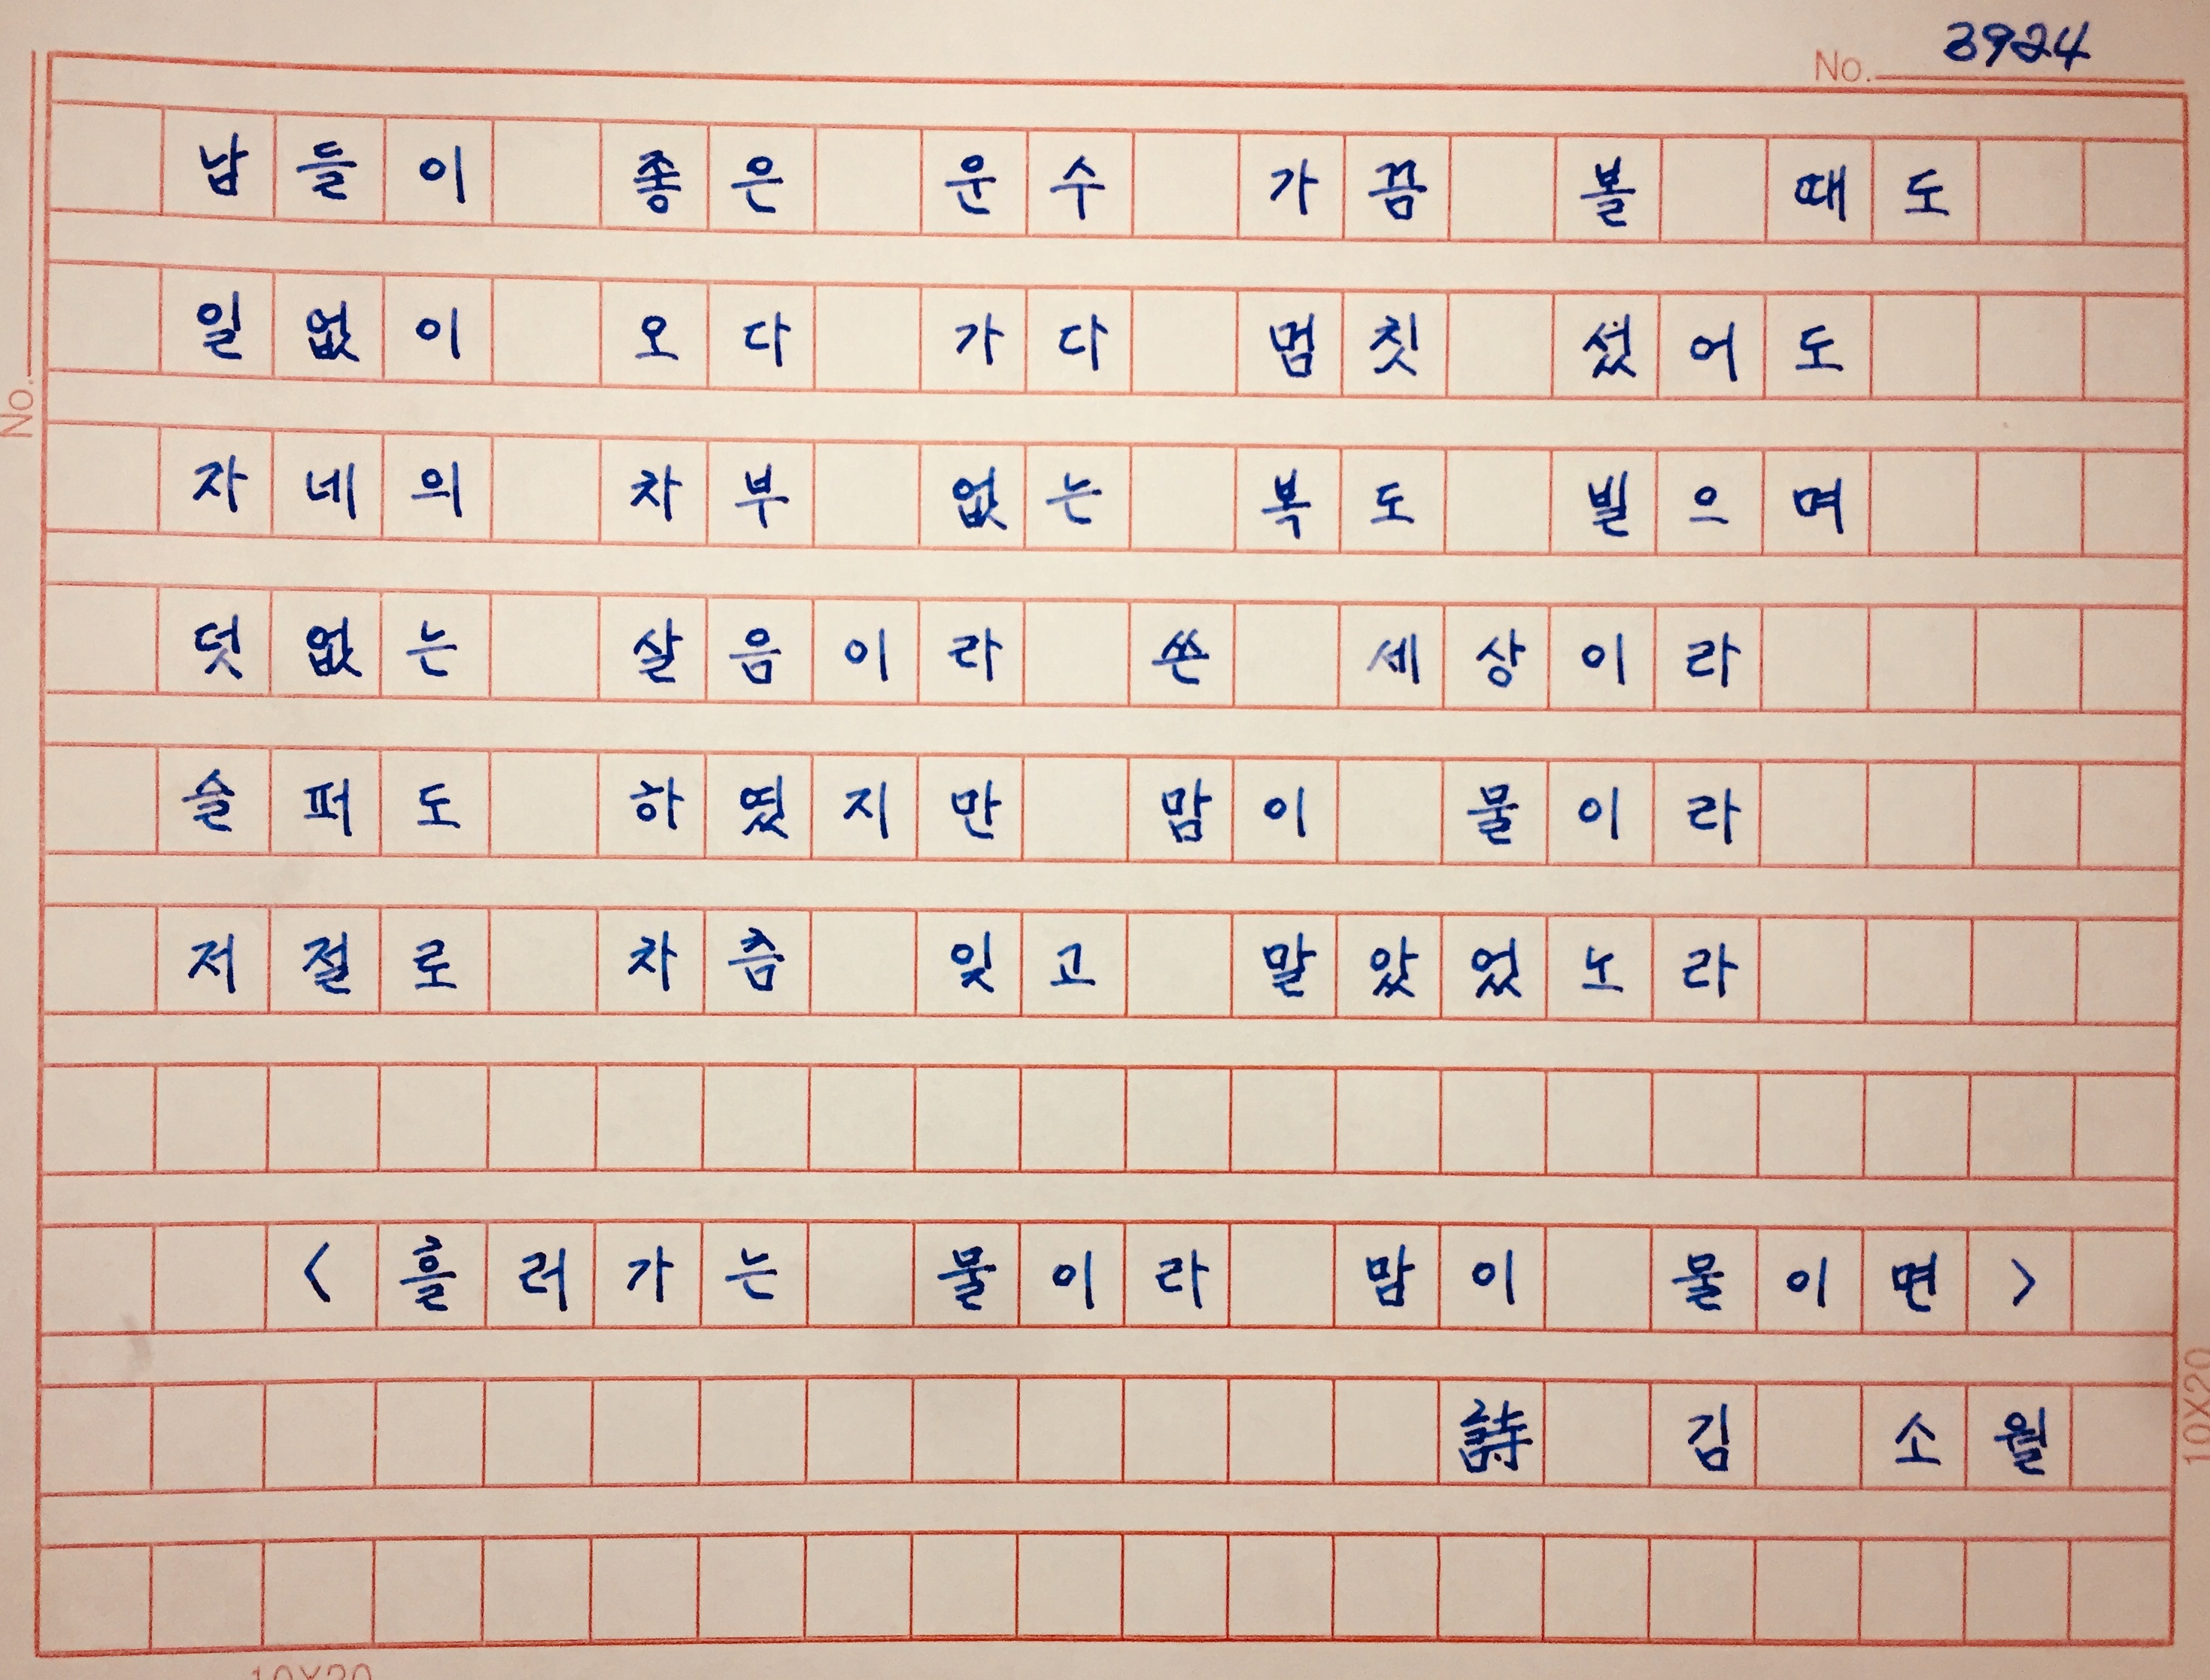 No. 3924
남들이 좋은 운수 가끔 볼 때도
일없이 오다 가다 멈칫 섰어도
자네의 차부 없는 복도 빌으며
덧없는 살음이라 쓴 세상이라
슬퍼도 하였지만 맘이 물이라
저절로 차츰 잊고 말았었노라
<흘러가는 물이라 맘이 물이면>
詩 김 소월
No.
10X20
10X20